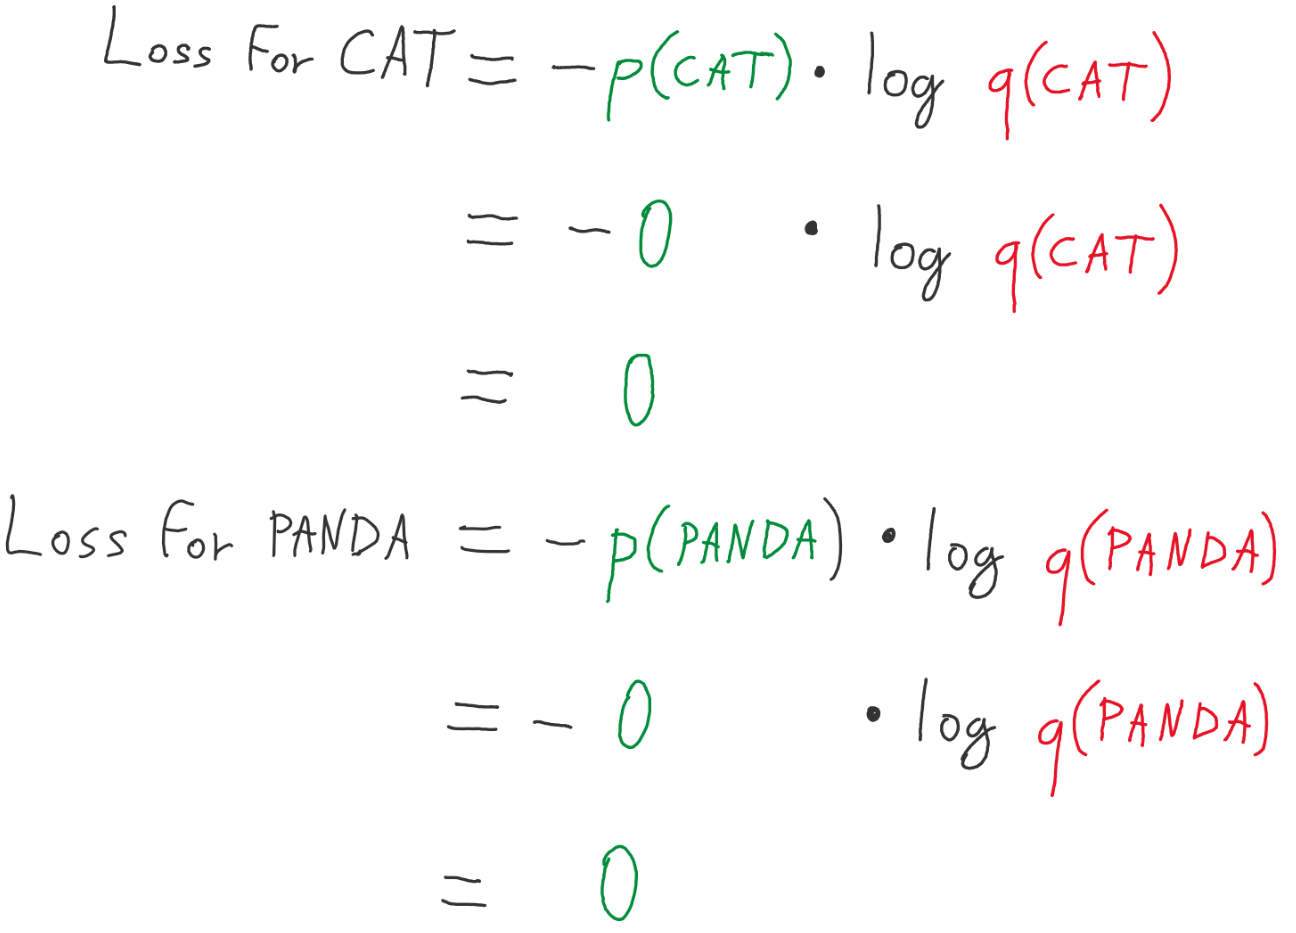 Loss For CAT = - p(CAT) · log q(CAT)
= - 0 · log q(CAT)
= 0
Loss For PANDA = - p(PANDA) · log q(PANDA)
= - 0 · log q(PANDA)
= 0